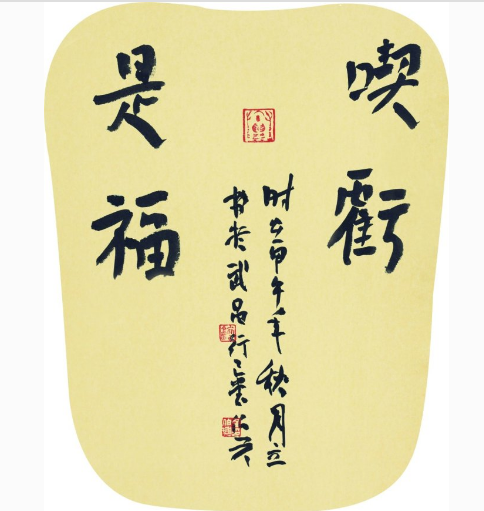 喫虧
是福
时在甲午年秋月立
书于武昌行云